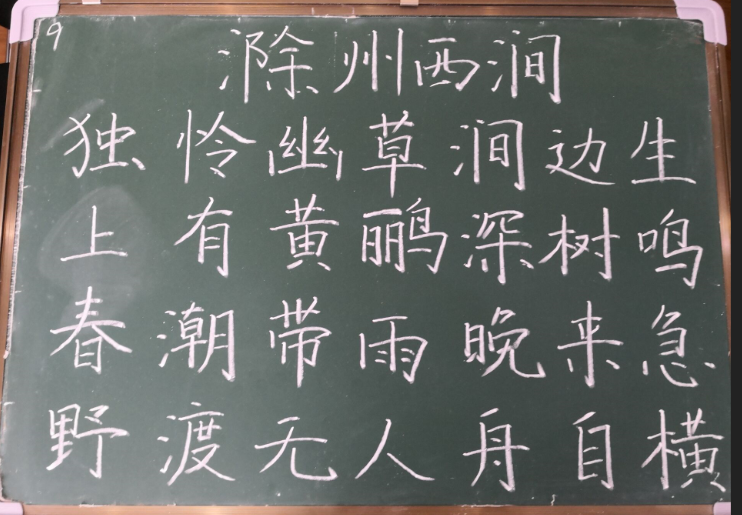 9
滁州西涧
独怜幽草涧边生
上有黄鹂深树鸣
春潮带雨晚来急
野渡无人舟自横